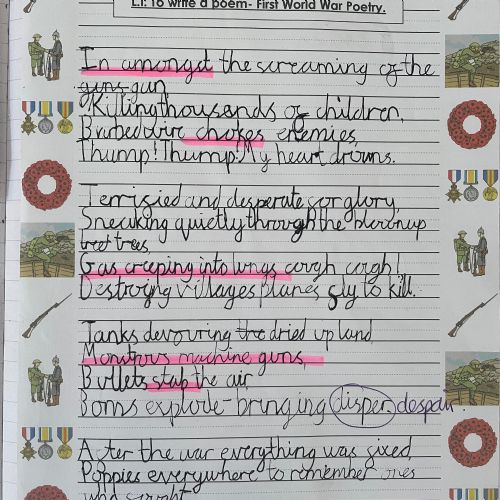 L.I: To write a poem- First World War Poetry.
In amongst the screaming of the
guns gun
Killing thousands of children,
Barbed wire chokes enemies,
Thump! Thump! My heart drums.
Terrified and desperate for glory,
Sneaking quietly through the blown up
treet trees
Gas creeping into lungs cough cough!
Destroying villages planes fly to kill.
Tanks devouring the dried up land,
Monstrous machine guns,
Bullets stab the air
Boms explode- bringing disper despair
After the war everything was fixed,
Poppies everywhere to remember ones
who fought